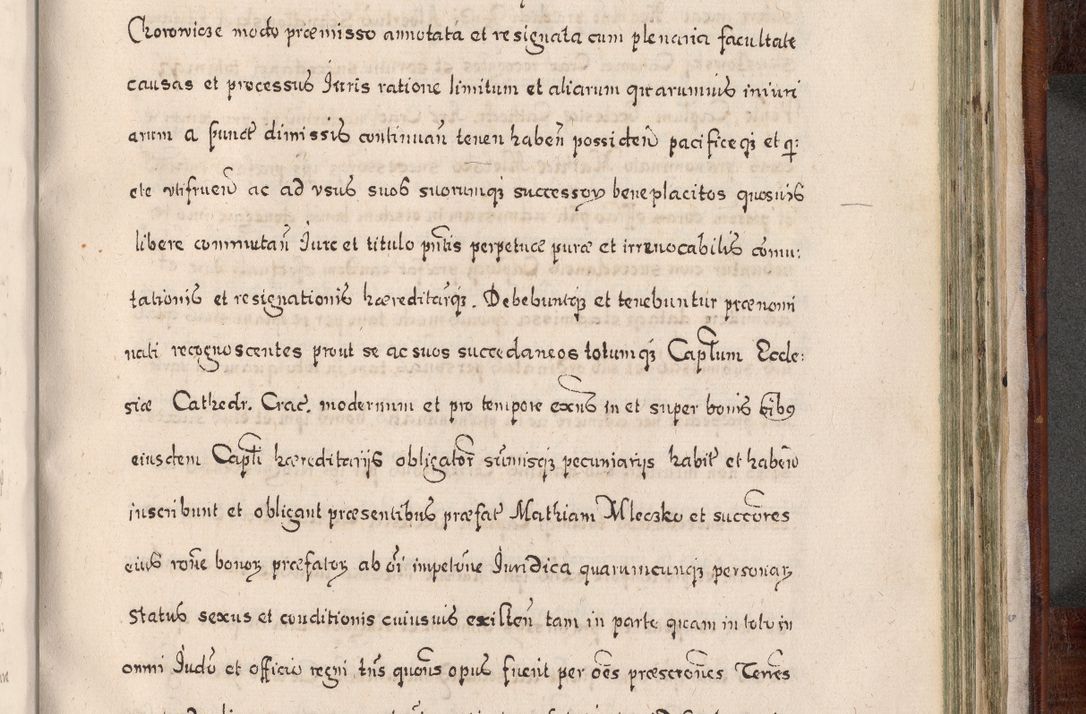 Chorowicze modo præmisso annotata et resignata cum plenaria facultate
causas et processus Juris ratione limitum et aliarum quarumuis iniuri
arum a punct dimissis continuan tenen haben possiden pacificeq₃ et q:
ete vtifruen ac ad vsus suos suorumq₃ successoꝝ beneplacitos quosuis
libere commutan Jure et titulo pntis perpetuæ puræ et irreuocabilis comu:
tationis et resignationis hæreditarq₃. Debebuntq₃ et tenebuntur prænomi
nati recognoscentes prout se ac suos succedaneos totumq₃ Captlum Eccle:
siæ Cathedr. Crac. modernum et pro tempore exns in et super bonis
eiusdem Captli hæreditarijs obligator sumisq₃ pecuniarijs habit et haben
inscribunt et obligant præsentibus præfat Mathiam Mleczko et succores
eius rone bonoꝝ præfatoꝝ ab oi impetone Juridica quarumcunq₃ personaꝝ
status sexus et conditionis cuiusuis existen tam in parte quam in toto in
omni Judo et officio regni tns quouis opus fuerit per oes præscrones Terres